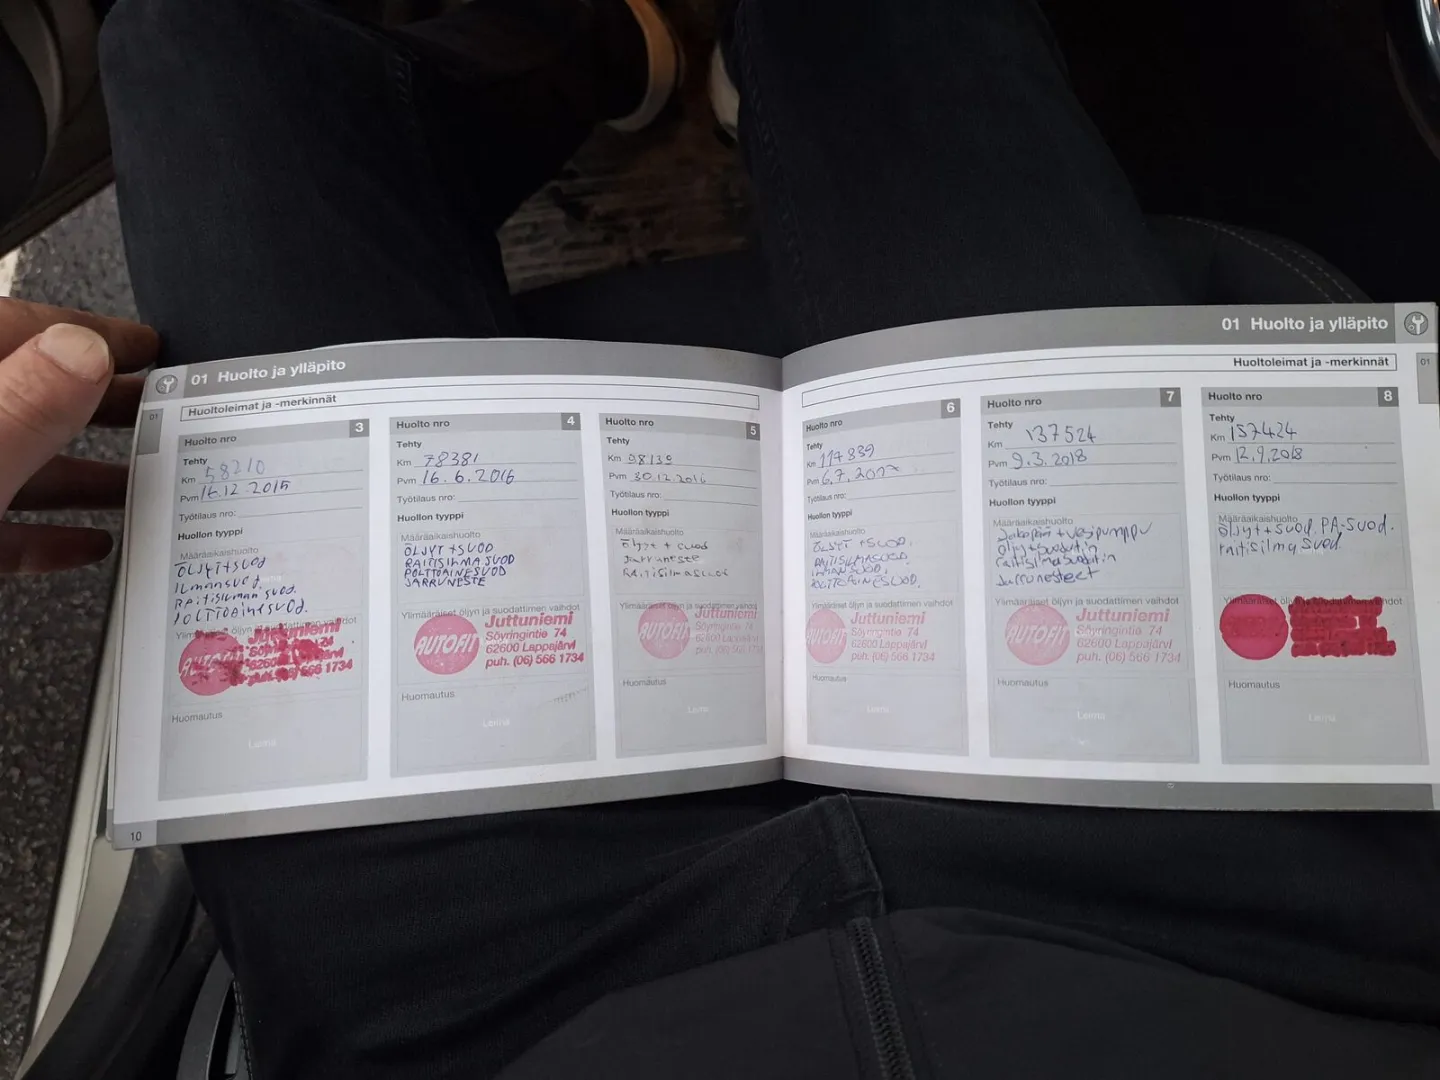 01 Huolto ja ylläpito
01
Huoltoleimat ja -merkinnät
Huolto nro 3
Tehty
Km 58210
Pvm 16.12.2015
Työtilaus nro:
Huollon tyyppi
Määräaikaishuolto
ÖLJYT+SUOD
ILMANSUOD.
RAITISILMAN SUOD.
POLTTOAINESUOD.
Ylimääräiset öljyn ja suodattimen vaihdot
AUTOFIT
Juttuniemi
62600 Lappajärvi
puh. (06) 566 1734
Huomautus
Leima
10
Huolto nro 4
Tehty
Km 78381
Pvm 16.6.2016
Työtilaus nro:
Huollon tyyppi
Määräaikaishuolto
ÖLJYT +SUOD
RAITISILMA SUOD
POLTTOAINESUOD
JARRUNESTE
Ylimääräiset öljyn ja suodattimen vaihdot
AUTOFIT
Juttuniemi
Söyringintie 74
62600 Lappajärvi
puh. (06) 566 1734
Huomautus
Leima
Huolto nro 5
Tehty
Km 98139
Pvm 30.12.2016
Työtilaus nro:
Huollon tyyppi
Määräaikaishuolto
Öljyt + suod
Jarruneste
Raitisilmasuod
Ylimääräiset öljyn ja suodattimen vaihdot
AUTOFIT
Juttuniemi
Söyringintie 74
62600 Lappajärvi
puh. (06) 566 1734
Huomautus
Leima
01 Huolto ja ylläpito
Huoltoleimat ja -merkinnät
01
Huolto nro 6
Tehty
Km 117839
Pvm 6.7.2017
Työtilaus nro:
Huollon tyyppi
Määräaikaishuolto
ÖLJYT +SUOD.
RAITISILMASUOD.
ILMANSUOD.
POLTTOAINESUOD.
Ylimääräiset öljyn ja suodattimen vaihdot
AUTOFIT
Juttuniemi
Söyringintie 74
62600 Lappajärvi
puh. (06) 566 1734
Huomautus
Leima
Huolto nro 7
Tehty
Km 137524
Pvm 9.3.2018
Työtilaus nro:
Huollon tyyppi
Määräaikaishuolto
Jakopää+vesipumppu
öljyt+suodatin
raitisilmasuodatin
Jarrunesteet
Ylimääräiset öljyn ja suodattimen vaihdot
AUTOFIT
Juttuniemi
Söyringintie 74
62600 Lappajärvi
puh. (06) 566 1734
Huomautus
Leima
Huolto nro 8
Tehty
Km 157424
Pvm 12.9.2018
Työtilaus nro:
Huollon tyyppi
Määräaikaishuolto
öljyt+suod. PA-suod.
raitisilmasuod.
Ylimääräiset öljyn ja suodattimen vaihdot
Huomautus
Leima